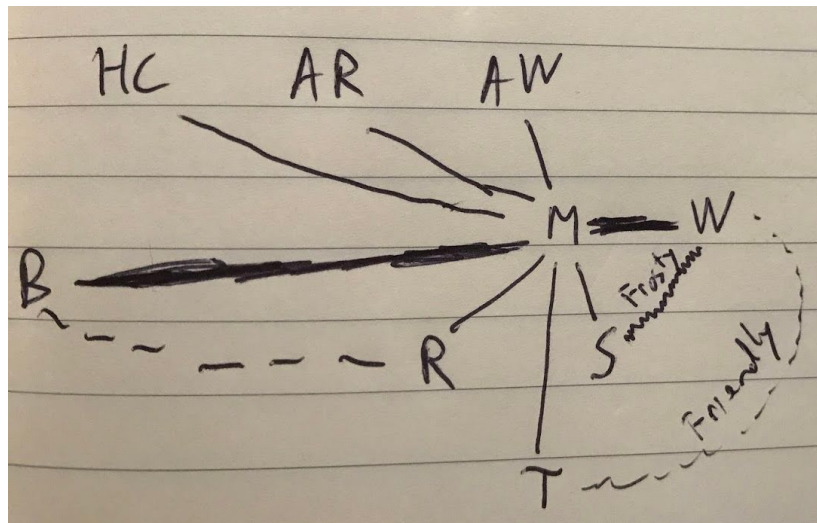 HC AR AW
M W
B
Frosty
R S
Friendly
T